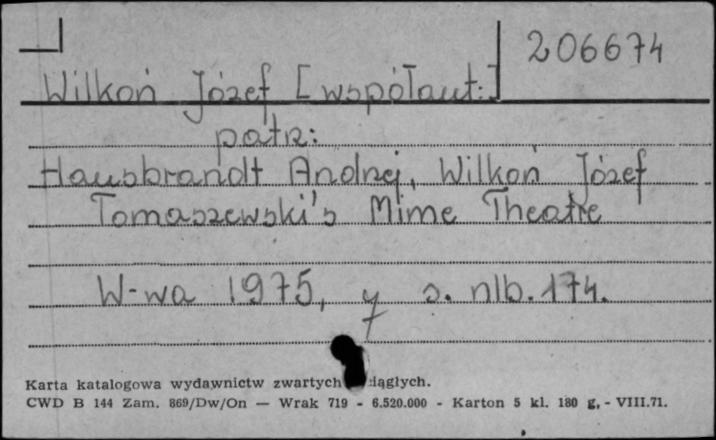 206674
Wilkoń Józef [współaut.:]
patrz:
Hausbrandt Andrzej, Wilkoń Józef
Tomaszewski's Mime Theatre
W-wa 1975, y s. nlb. 174.
Karta katalogowa wydawnictw zwartych ciągłych.
CWD B 144 Zam. 869/Dw/On — Wrak 719 - 6.520.000 - Karton 5 kl. 180 g, - VIII.71.